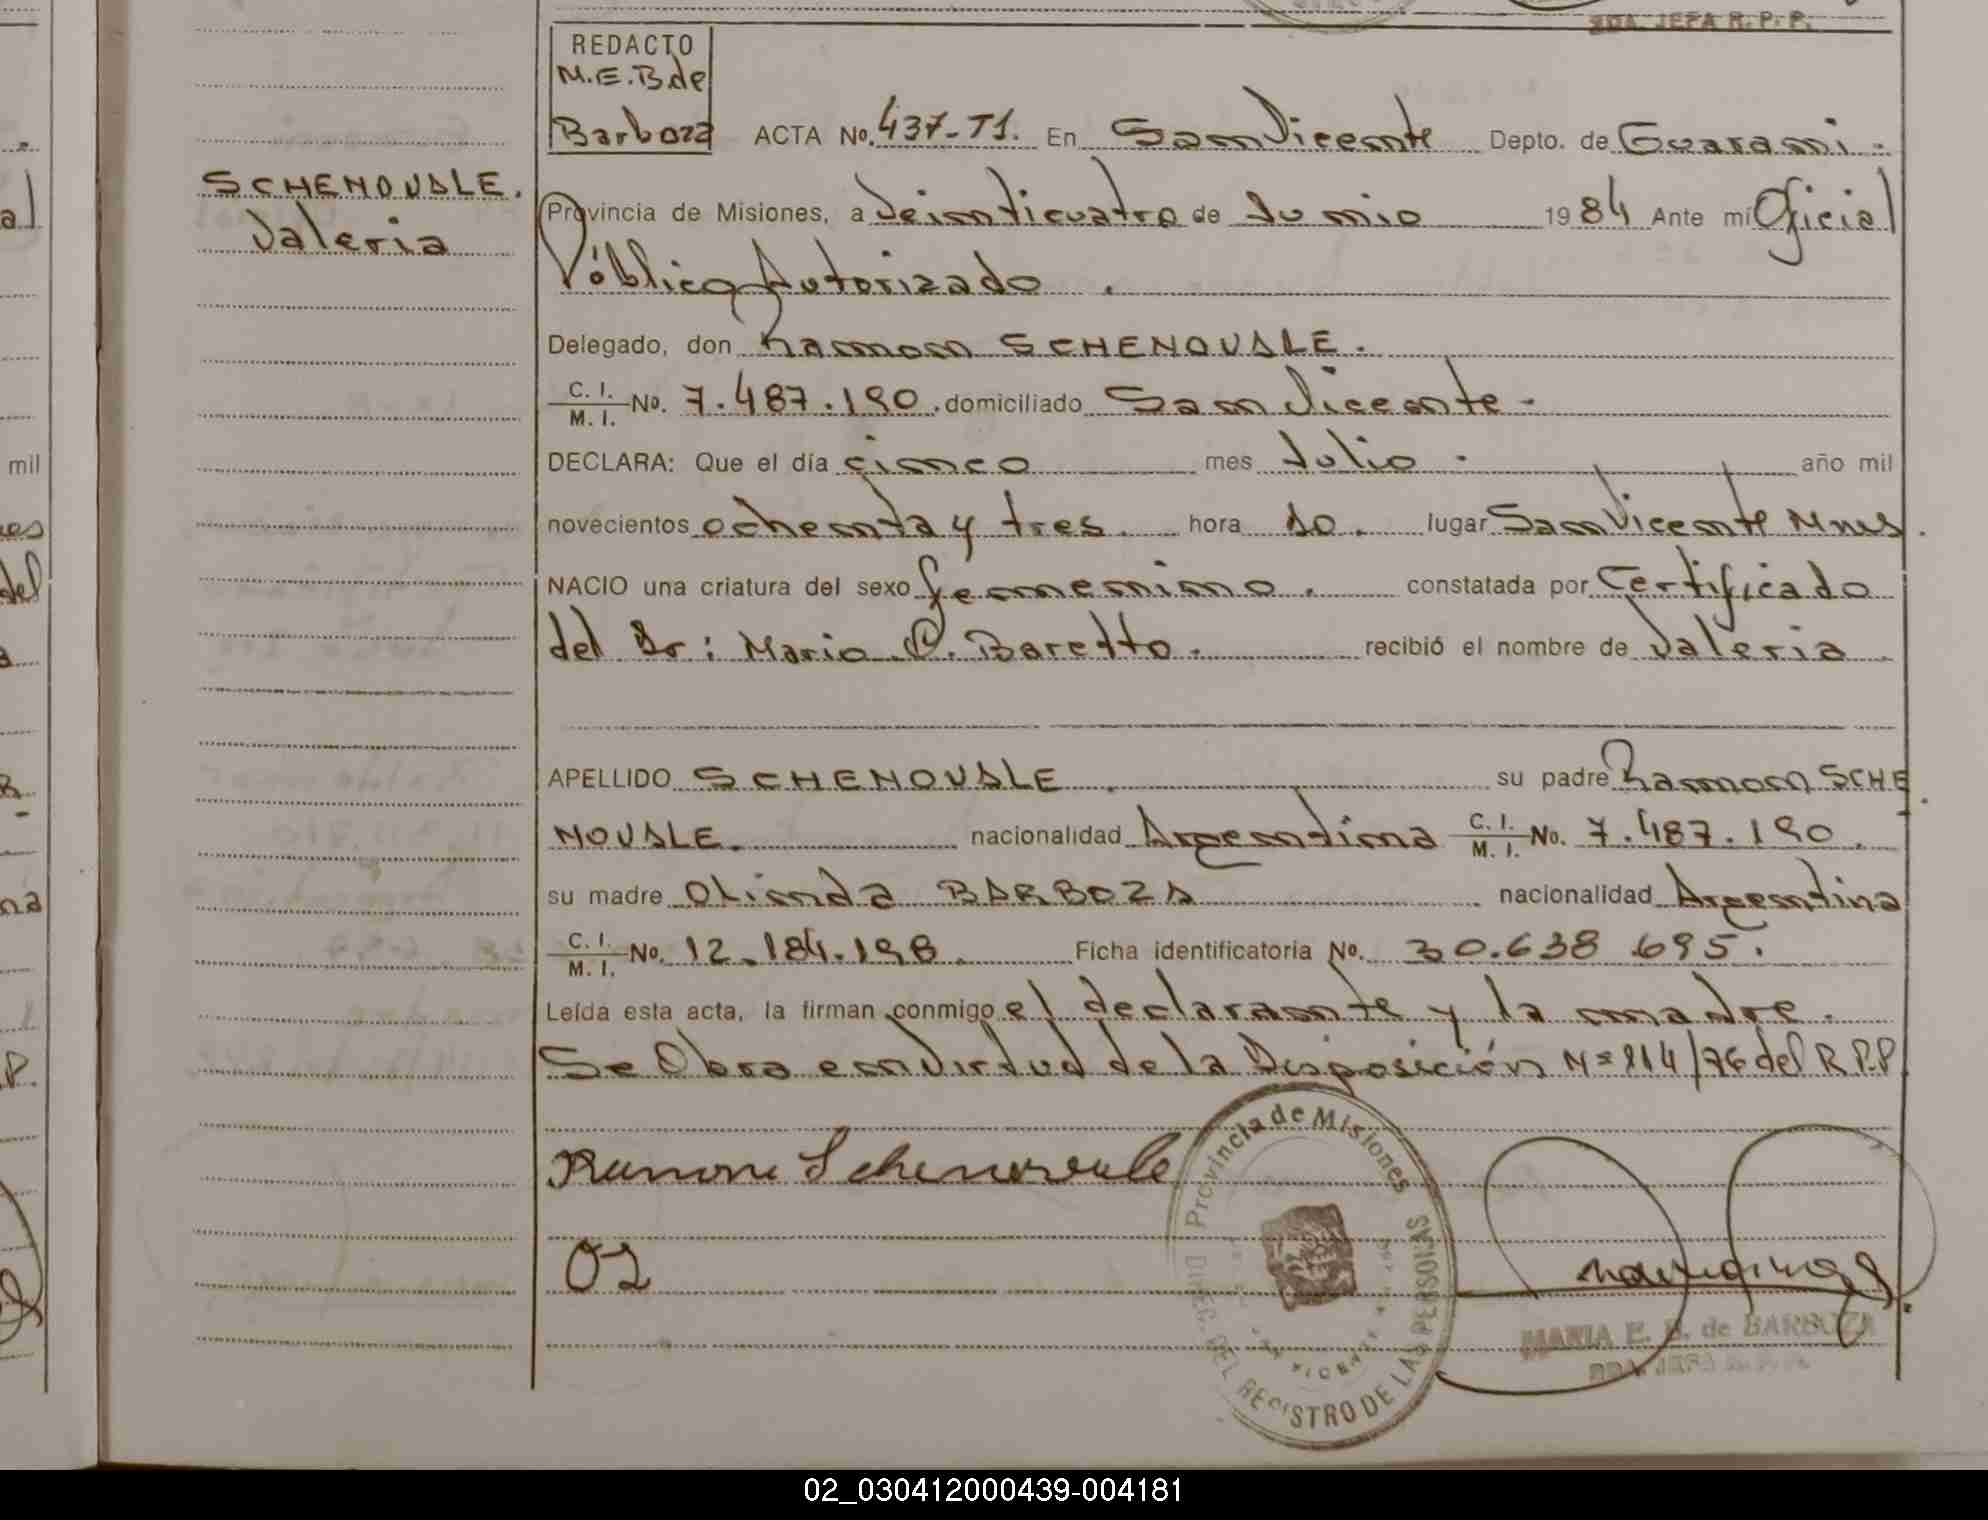 2DA. JEFA R. P. P.
REDACTO
M.E.B de
Barboza
ACTA No. 437-T1. En San Vicente Depto. de Guarani.
SCHENOVALE.
Valeria
Provincia de Misiones, a Veinticuatro de Junio 1984 Ante mí Oficial
Público Autorizado.
Delegado, don Ramon SCHENOVALE.
C. I.
M. I. No. 7.487.190. domiciliado San Vicente -
DECLARA: Que el día cinco mes Julio. año mil
novecientos ochenta y tres. hora 10. lugar San Vicente Mnes.
NACIO una criatura del sexo femenino. constatada por Certificado
del Dr: Mario C. Baretto. recibió el nombre de Valeria
APELLIDO SCHENOVALE. su padre Ramon SCHE
NOVALE. nacionalidad Argentina C. I. M. I. No. 7.487.190.
su madre Olinda BARBOZA nacionalidad Argentina
C. I.
M. I. No. 12.184.198. Ficha identificatoria No. 30.638 695.
Leída esta acta, la firman conmigo el declarante y la madre.
Se Obra en virtud de la Disposición Nº 114/76 del R.P.P
Ramon Schenovale
Provincia de Misiones
DIREC. DEL REGISTRO DE LAS PERSONAS
SAN VICENTE
OL
MARIA E. B. de BARBOZA
2DA. JEFA R. P. P.
02_030412000439-004181